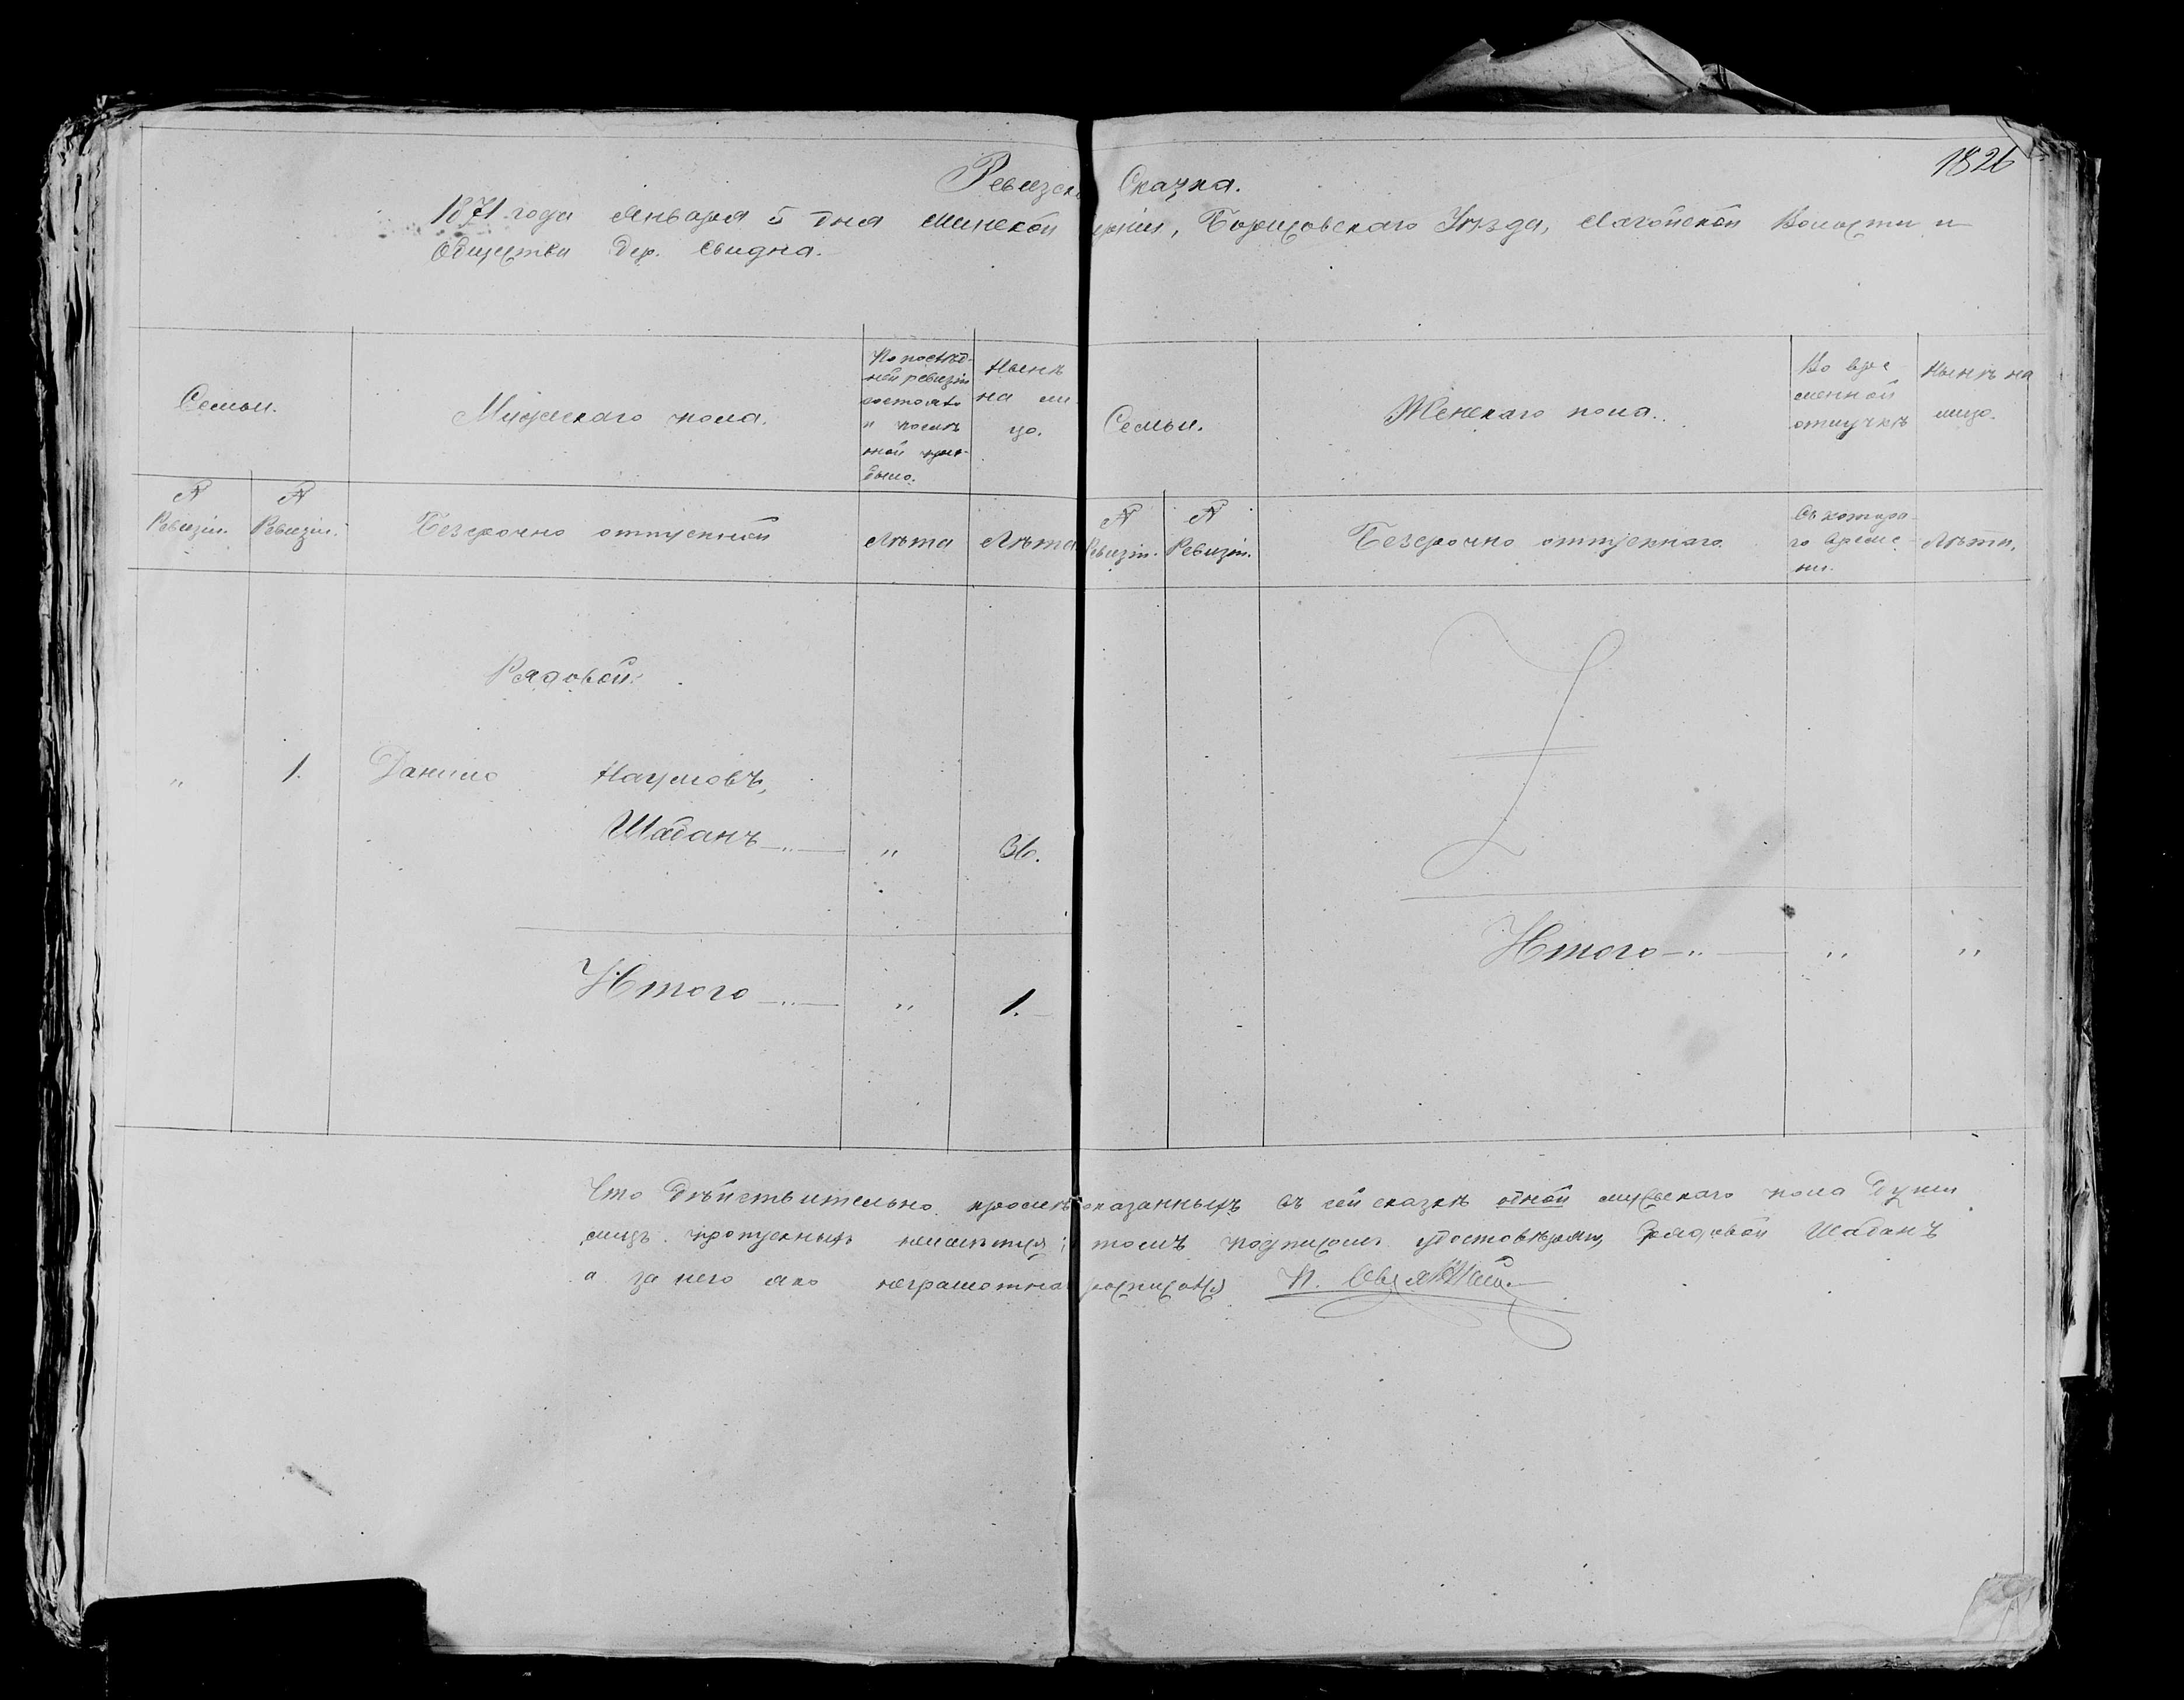 1826
Ревизск Сказка.
1871 года Января 5 дня Минской ерніи, Борисовскаго Уѣзда, Лагойской Волости и
Общества дер. Свидна.
Семьи.
Мужескаго пола.
По послѣд-
ней ревизіи
состояло
и послѣ
оной при-
было.
Нынѣ
на ли
цо.
Семьи.
Женскаго пола.
Во вре
менной
отлучкѣ
Нынѣ на
лицо.
№
Ревизіи.
№
Ревизіи.
Безсрочно отпускной
Лѣта
Лѣта
№
Ревизіи.
№
Ревизіи.
Безсрочно отпускнаго
Съ котора-
го време
ни.
Лѣта.
Рядовой
" 1. Данило Наумовъ,
Шабанъ " 36.
Итого " 1.
Итого " "
Что дѣйствительно кромѣ оказанныхъ въ сей сказкѣ одной мужескаго пола души
лицъ пропускныхъ неимѣется; томъ подписомъ удостовѣряю, Рядовой Шабанъ
а за него яко неграмотна росписался И.